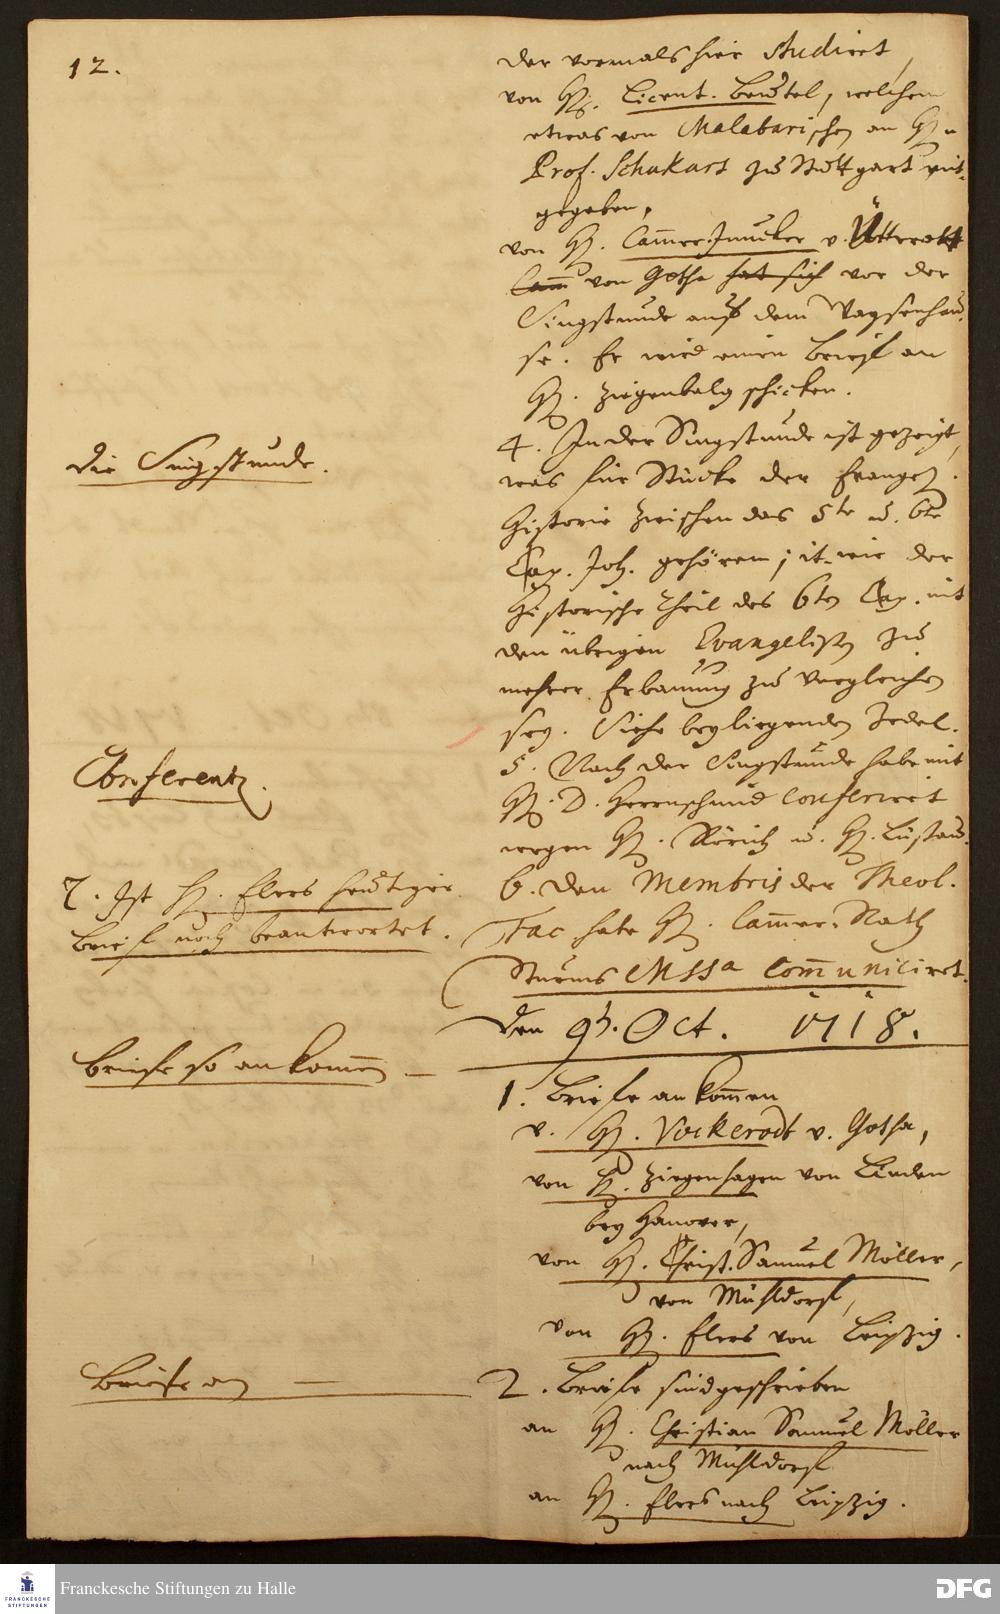 12.
der vormals hier studiret,
von H. Licent. Beustel, welchem
etwas von Malabarischen an H.
Prof. Schukart zu Stuttgart mit-
gegeben,
von H. Cammer-Juncker v. Utterodt
Camm von Gotha hat sich vor der
Singstunde auf dem Waysenhau-
se. Er wird einen Brief an
H. Ziegenbalg schicken.
die Singstunde.
4. In der Singstunde ist gezeigt,
was für Stücke der Evangel.
Historie zwischen das 5te u. 6te
Cap. Joh. gehören; it. wie der
Historische Theil des 6ten Cap. mit
den übrigen Evangelisten zu
mehrer Erbauung zu vergleichen
sey. Siehe beyliegenden Zedel.
Conferentz.
5. Nach der Singstunde habe mit
H. D. Herrnschmid conferiret
wegen H. Rörich u. H. Lüstau.
7. Ist H. Elers heutiger
Brief noch beantwortet.
6. Den Membris der Theol.
Fac habe H. Cammer-Rath
Sturms Mssa communiciret.
Den 9. Oct. 1718.
Briefe so ankommen
1. Briefe ankommen
v. H. Vockerodt v. Gotha,
von H. Ziegenhagen von Linden
bey Hanover,
von H. Christ. Samuel Möller,
von Mühldorf,
von H. Elers von Leipzig.
Briefe an
2. Briefe sind geschrieben
an H. Christian Samuel Möller
nach Mühldorf
an H. Elers nach Leipzig.
FRANCKESCHE
STIFTUNGEN
Franckesche Stiftungen zu Halle
DFG